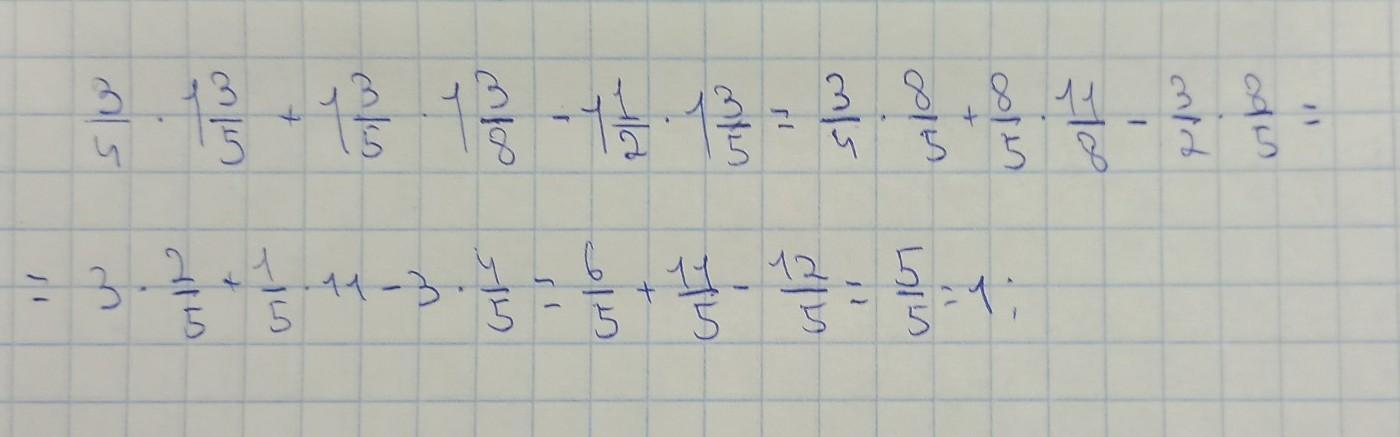 3/4 · 1 3/5 + 1 3/5 · 1 3/8 - 1 1/2 · 1 3/5 = 3/4 · 8/5 + 8/5 · 11/8 - 3/2 · 8/5 =
= 3 · 2/5 + 1/5 · 11 - 3 · 4/5 = 6/5 + 11/5 - 12/5 = 5/5 = 1;